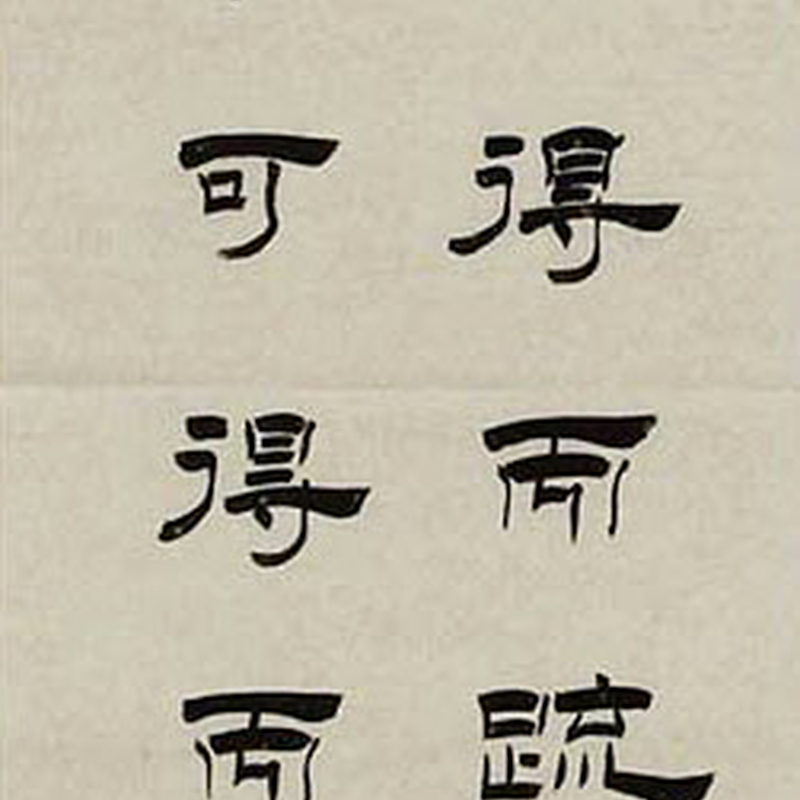 得而疏
可得而